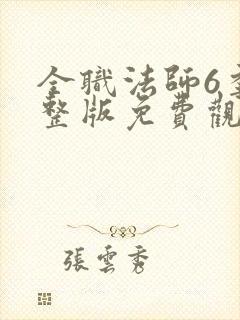 全職法師6
整版免費觀
張雲秀